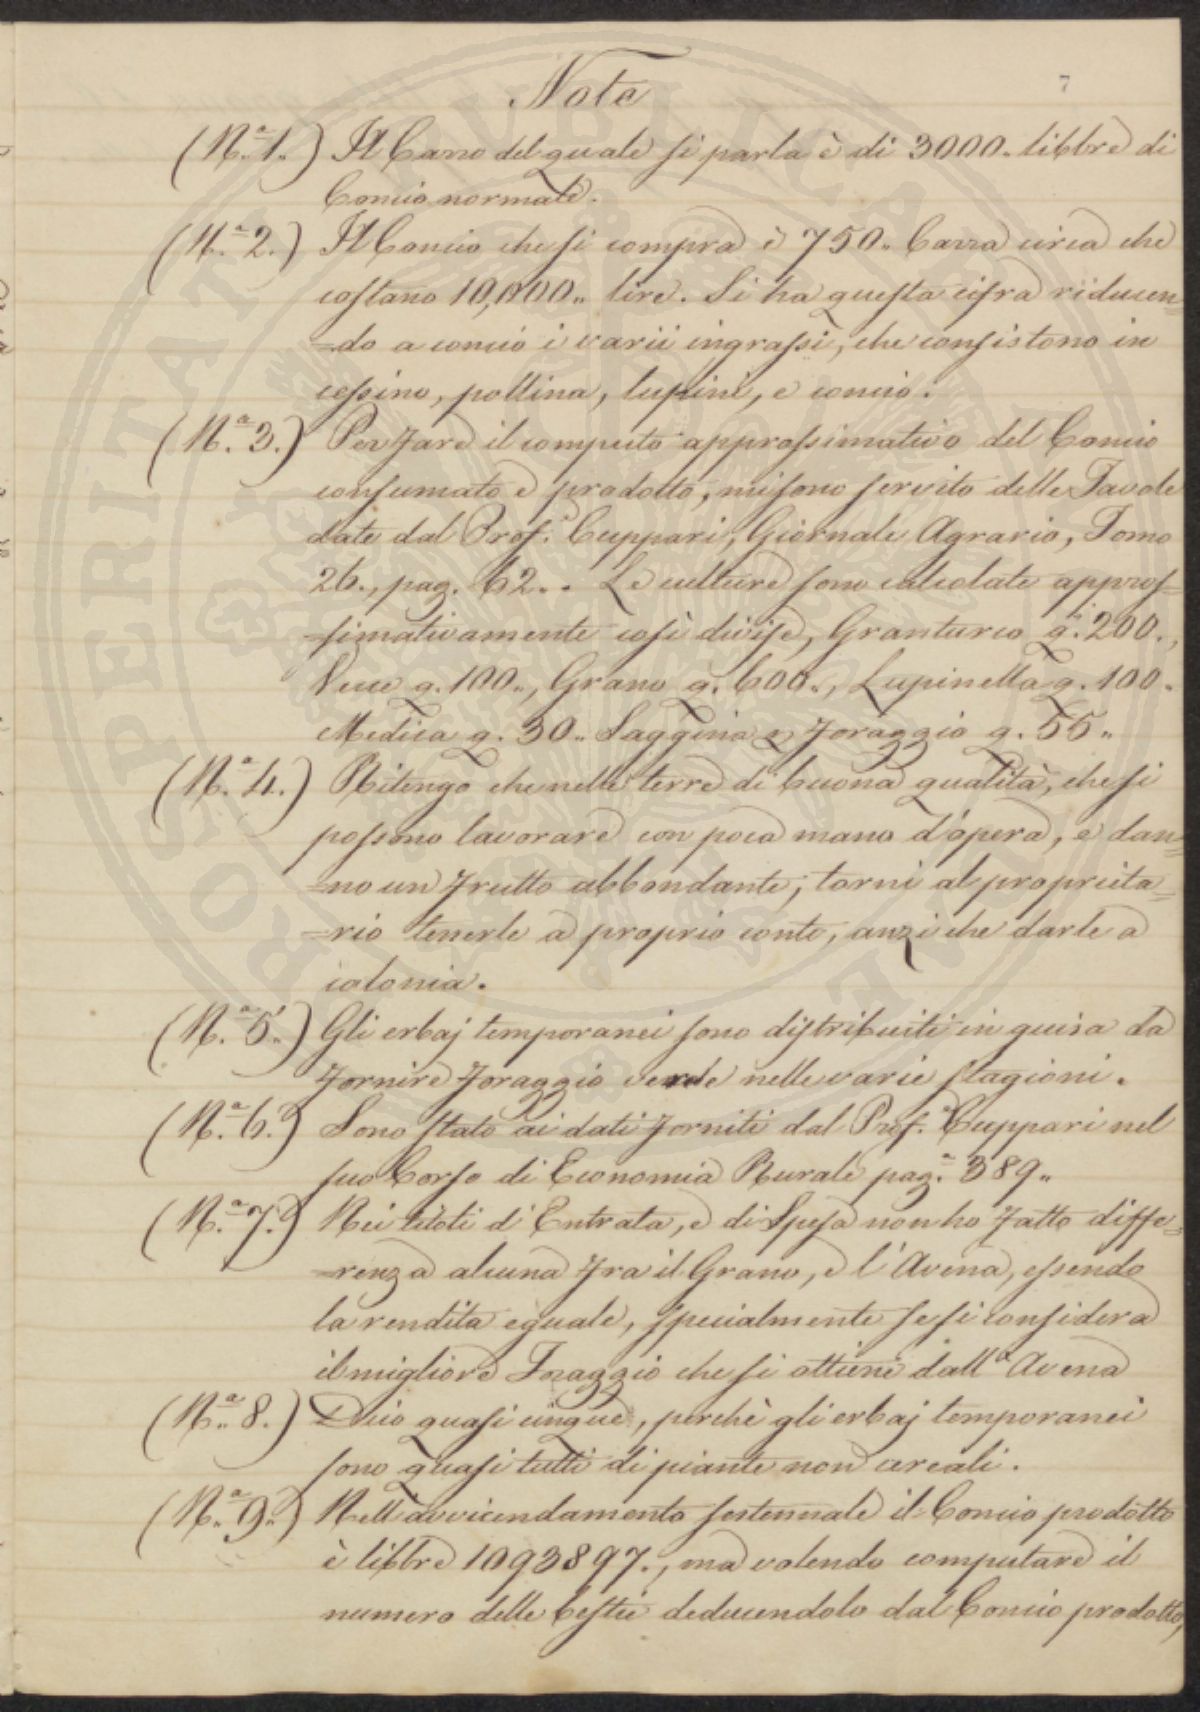 Note
7
(N.ª 1.) Il Carro del quale si parla è di 3000. libbre di
Concio normale.
(N.ª 2.) Il Concio che si compra è 750. Carra circa che
costano 10,000. lire. Si ha questa cifra riducen=
=do a concio i varii ingrassi, che consistono in
cessino, pollina, lupini, e concio.
(N.ª 3.) Per fare il computo approssimativo del Concio
consumato e prodotto, mi sono servito delle Tavole
date dal Prof. Cuppari, Giornale Agrario, Tomo
26., pag. 62.. Le culture sono calcolate appros=
=simativamente così divise, Granturco q. 200.,
Vecce q. 100., Grano q. 600., Lupinella q. 100.
Medica q. 30. Saggina e foraggio q. 55.
(N.ª 4.) Ritengo che nelle terre di buona qualità, che si
possono lavorare con poca mano d'opera, e dan=
=no un frutto abbondante, torni al proprieta=
=rio tenerle a proprio conto, anzi che darle a
colonia.
(N.ª 5.) Gli erbaj temporanei sono distribuiti in guisa da
fornire foraggio verde nelle varie stagioni.
(N.ª 6.) Sono stato ai dati forniti dal Prof. Cuppari nel
suo Corso di Economia Rurale pag.ª 389.
(N.ª 7.) Nei titoli d'Entrata, e di Spesa non ho fatto diffe=
=renza alcuna fra il Grano, e l'Avena, essendo
la rendita eguale, specialmente se si considera
il migliore Foraggio che si ottiene dall'Avena
(N.ª 8.) Dico quasi cinque, perchè gli erbaj temporanei
sono quasi tutti di piante non cereali.
(N.ª 9.) Nell'avvicendamento sestennale il Concio prodotto
è libbre 1093897., ma volendo computare il
numero delle bestie deducendolo dal Concio prodotto,
PROSPERITATI PUBLICAE AUGENDAE